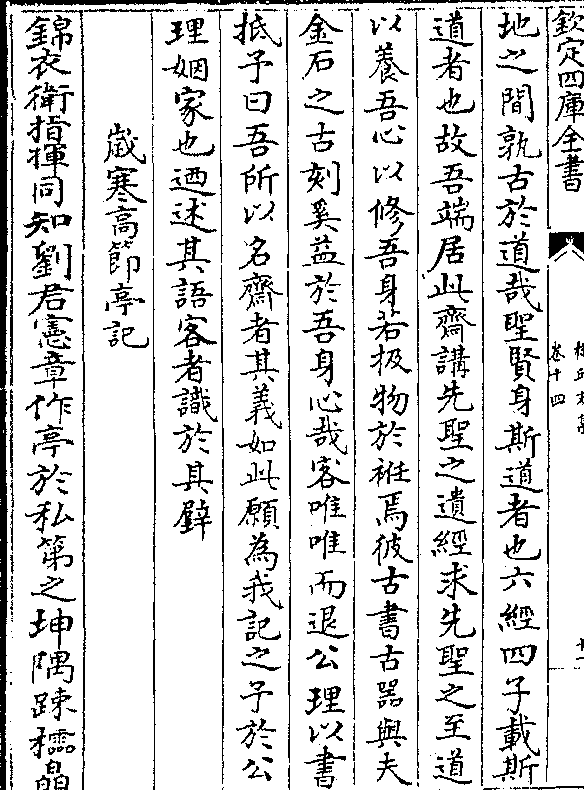 欽定四庫全書
卷十四
地之間孰古於道哉聖賢身斯道者也六經四子載斯
道者也故吾端居此齋講先聖之遺經求先聖之至道
以養吾心以修吾身若扱物於袵焉彼古書古器與夫
金石之古刻奚益於吾身心哉客唯唯而退公理以書
抵予曰吾所以名齋者其義如此願為我記之予於公
理姻家也迺述其語客者識於其壁
歲寒高節亭記
錦衣衛指揮同知劉君憲章作亭於私第之坤隅疎櫺晶